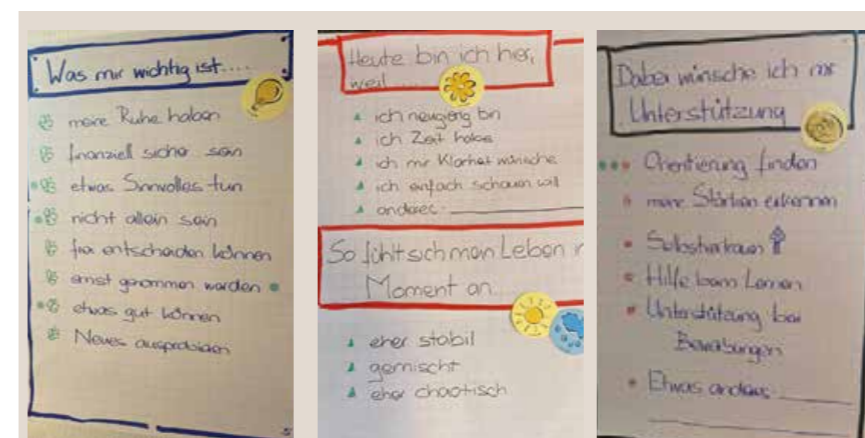 Was mir wichtig ist....
meine Ruhe haben
finanziell sicher sein
etwas Sinnvolles tun
nicht allein sein
frei entscheiden können
ernst genommen werden
etwas gut können
Neues ausprobieren
Heute bin ich hier,
weil
ich neugierig bin
ich Zeit habe
ich mir Klarheit wünsche
ich einfach schauen will
anderes: ____________
So fühlt sich mein Leben
Moment an
eher stabil
gemischt
eher chaotisch
Dabei wünsche ich mir
Unterstützung
Orientierung finden
meine Stärken erkennen
Selbstvertrauen
Hilfe beim Lernen
Unterstützung bei
Bewerbungen
Etwas anderes: ______